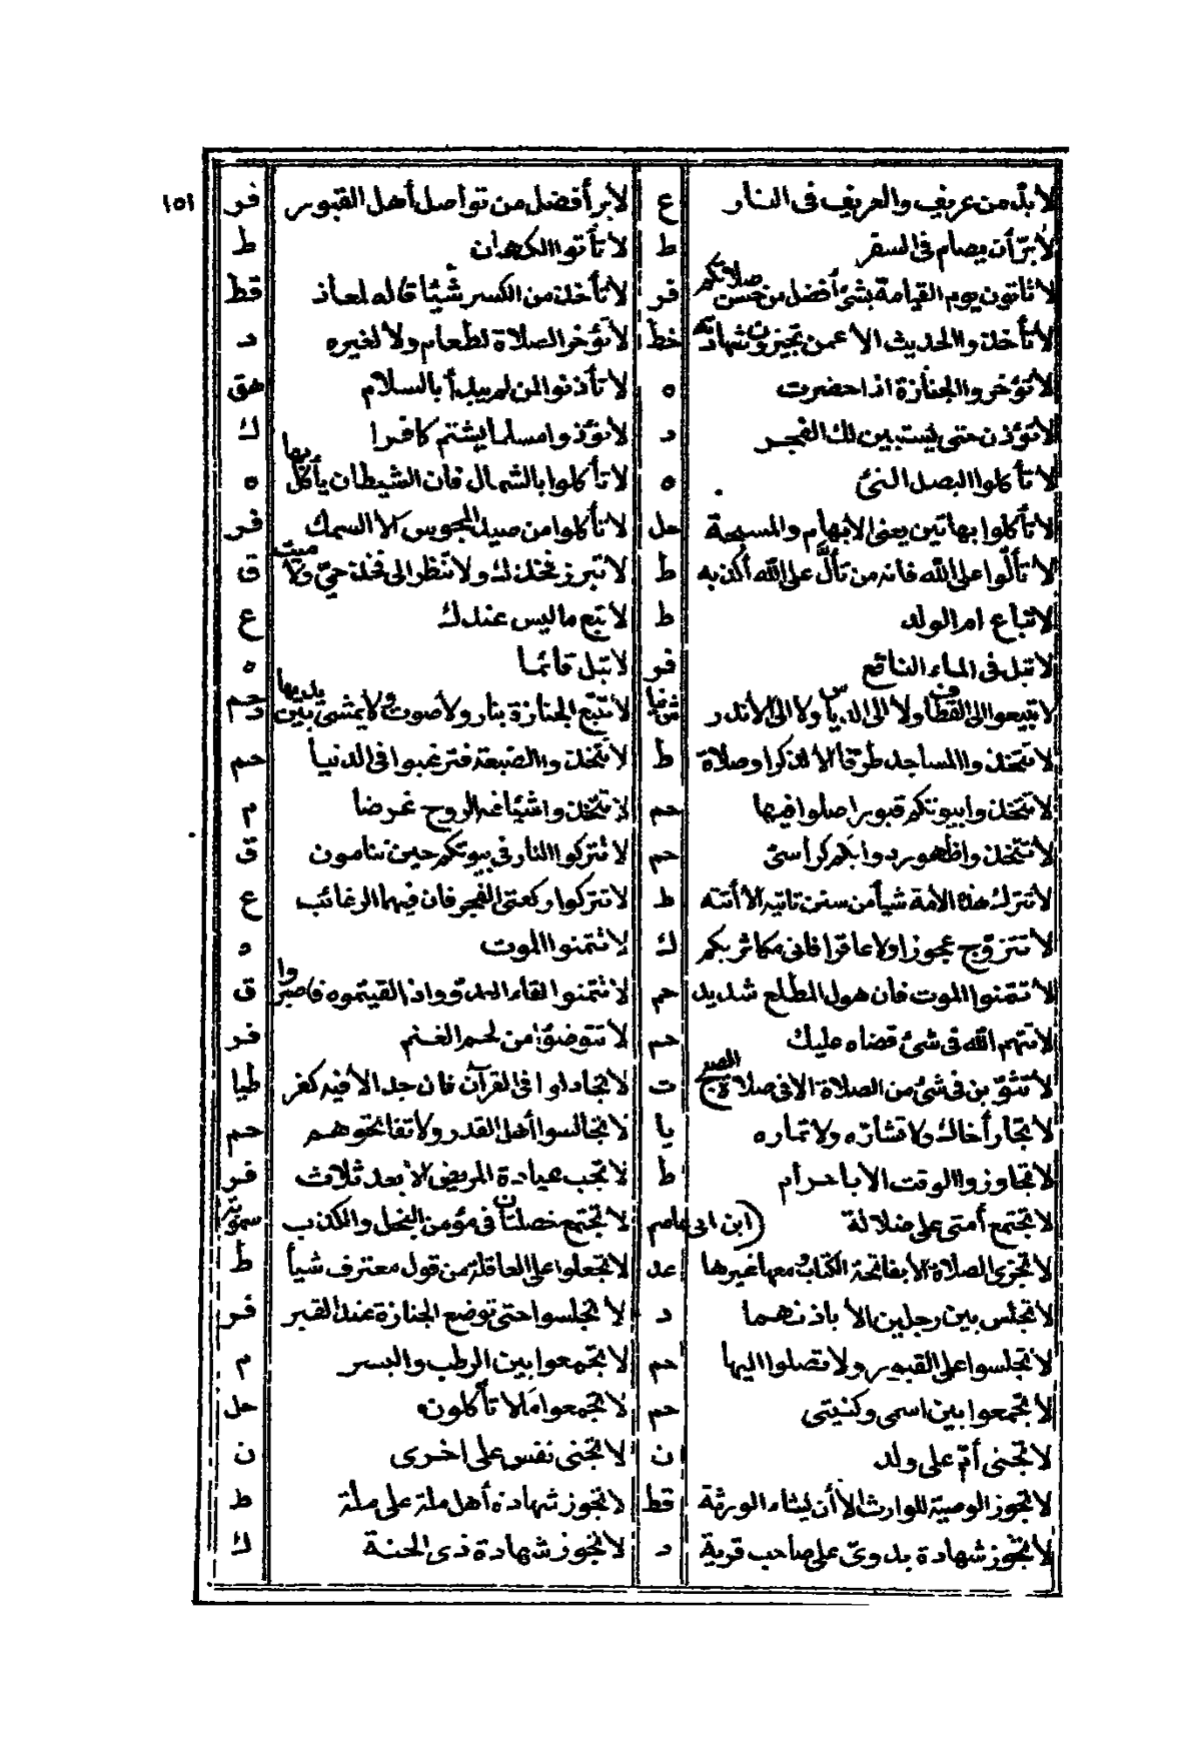 ١٥١
لا بد من عريف والعريف فى النار ع لا بر أفضل من تواصل أهل القبور فر
لا بر أن يصام فى السفر ط لا تأتوا الكهان ط
لا تأتون يوم القيامة بشئ أفضل من حسن صلاتكم فر لا تأخذ من الكسر شيئا قاله لمعاذ قط
لا تأخذوا الحديث الا عمن تجيزون شهادته خط لا تؤخر الصلاة لطعام ولا لغيره د
لا تؤخروا الجنازة اذا حضرت ه لا تأذنوا لمن لم يبدأ بالسلام هق
لا تؤذن حتى يستبين لك الفجر د لا تؤذوا مسلما بشتم كافرا ك
لا تأكلوا البصل النئ ه لا تأكلوا بالشمال فان الشيطان يأكل بها ه
لا تأكلوا بهاتين يعنى الابهام والمسبحة حل لا تأكلوا من صيد المجوس الا السمك فر
لا تألّوا على الله فانه من تألّ على الله أكذبه ط لا تبرز فخذك ولا تنظر الى فخذ حىّ ولا ميت ق
لا تباع ام الولد ط لا تبع ما ليس عندك ع
لا تبل فى الماء الناقع فر لا تبل قائما ه
لا تبيعوا الى القطاف ولا الى الدياس ولا الى الأندر لا تتبع الجنازة بنار ولا صوت ولا يمشى بين يديها حم د
لا تتخذوا المساجد طرقا الا لذكر او صلاة ط لا تتخذوا الضيعة فترغبوا فى الدنيا حم
لا تتخذوا بيوتكم قبورا صلوا فيها حم لا تتخذوا شيئا فيه الروح غرضا م
لا تتخذوا ظهور دوابكم كراسىّ حم لا تتركوا النار فى بيوتكم حين تنامون ق
لا تترك هذه الامة شيأ من سنن تاتيه الا أتته ط لا تتركوا ركعتى الفجر فان فيهما الرغائب ع
لا تتزوّج عجوزا ولا عاقرا فانى مكاثر بكم ك لا تتمنوا الموت د
لا تتمنوا الموت فان هول المطلع شديد حم لا تتمنوا لقاء العدو واذا لقيتموه فاصبروا ق
لا تتهم الله فى شئ قضاه عليك حم لا تتوضؤا من لحم الغنم فر
لا تثوّبن فى شئ من الصلاة الا فى صلاة الصبح ت لا تجادلوا فى القرآن فان جدالا فيه كفر طيا
لا تجار أخاك ولا تشارّه ولا تماره يا لا تجالسوا أهل القدر ولا تفاتحوهم حم
لا تجاوزوا الوقت الا باحرام ط لا تجب عيادة المريض الا بعد ثلاث فر
لا تجتمع أمتى على ضلالة (ابن ابى عاصم لا تجتمع خصلتان فى مؤمن البخل والكذب سمويه
لا تجزى الصلاة الا بفاتحة الكتاب ومعها غيرها عد لا تجعلوا على العاقلة من قول معترف شيأ ط
لا تجلس بين رجلين الا باذنهما د لا تجلسوا حتى توضع الجنازة عند القبر فر
لا تجلسوا على القبور ولا تصلوا اليها حم لا تجمعوا بين الرطب والبسر م
لا تجمعوا بين اسمى وكنيتى حم لا تجمعوا ما لا تأكلون حل
لا تجنى أمّ على ولد ن لا تجنى نفس على اخرى ن
لا تجوز الوصية للوارث الا أن يشاء الورثة قط لا تجوز شهادة أهل ملة على ملة ط
لا تجوز شهادة بدوىّ على صاحب قرية د لا تجوز شهادة ذى الحنة ك